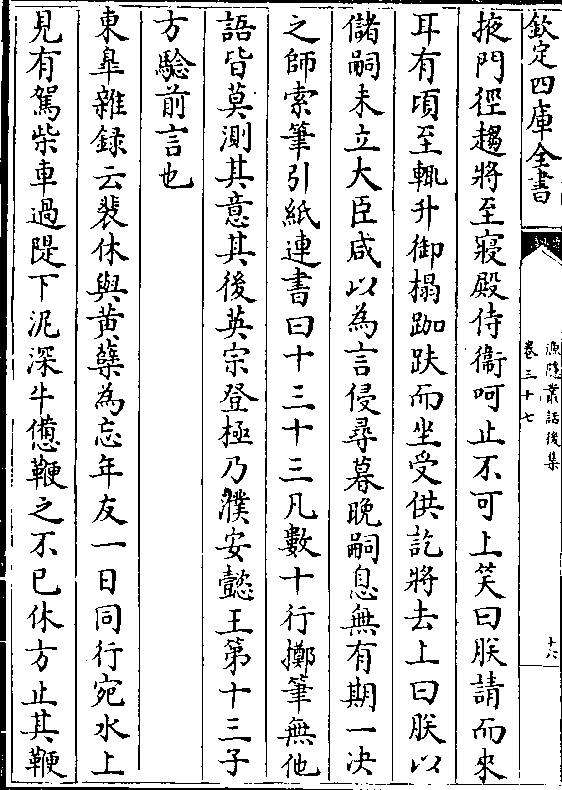 欽定四庫全書
漁隱叢話後集
卷三十七
十六
掖門徑趨將至寢殿侍衞呵止不可上笑曰朕請而來
耳有頃至輒升御榻跏趺而坐受供訖將去上曰朕以
儲嗣未立大臣咸以為言侵尋暮晚嗣息無有期一決
之師索筆引紙連書曰十三十三凡數十行擲筆無他
語皆莫測其意其後英宗登極乃濮安懿王第十三子
方驗前言也
東臯雜録云裴休與黄蘗為忘年友一日同行宛水上
見有駕柴車過隄下泥深牛憊鞭之不已休方止其鞭